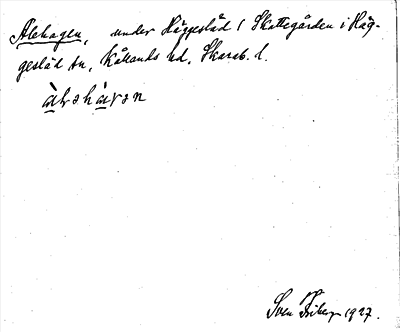 Alehagen, under Häggesled 1 Skattegården i Häg-
gesled sn, Kållands hd, Skarab. l.
àlɘhàɣɘn
Sven Friberg 1927.